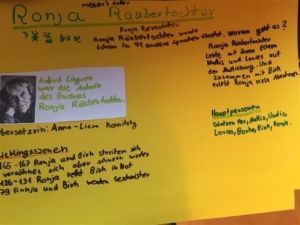 robber's dotter
Ronja Räubertochter
Ronja Räubertochter
Ronja Räubertochter wurde
schon in 41 andere sprachen übersetzt.
Worum geht es?
Ronja Räubertochter
Lebte mit ihren eltern
Mattis und Lovis auf
der Mattisburg. Und
zusammen mit Birk
erlebt Ronja viele Abenteuer
Astrid Lindgren
war die Autorin
des Buches
Ronja Räubertochter.
Übersetzerin: Anna-Liese Kornitzky
Hauptpersonen
Glatzen Per, Mattis, Undis,
Lovis, Borka, Birk, Ronja
Lieblingsszenen
165-167 Ronja und Birk streiten sich
versöhnen sich aber schnell wieder
126-131 Ronja rettet Birk in Not
79 Ronja und Birk werden Geschwister